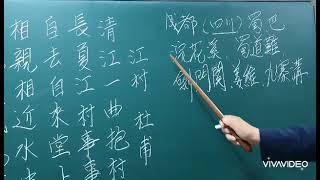 成都(四川)蜀巴
浣花溪、蜀道難
劍門關、姜維、九寨溝
江村 杜甫
清江一曲抱村
長夏江村事事
自去自來堂上
相親相近水
VIVAVIDEO